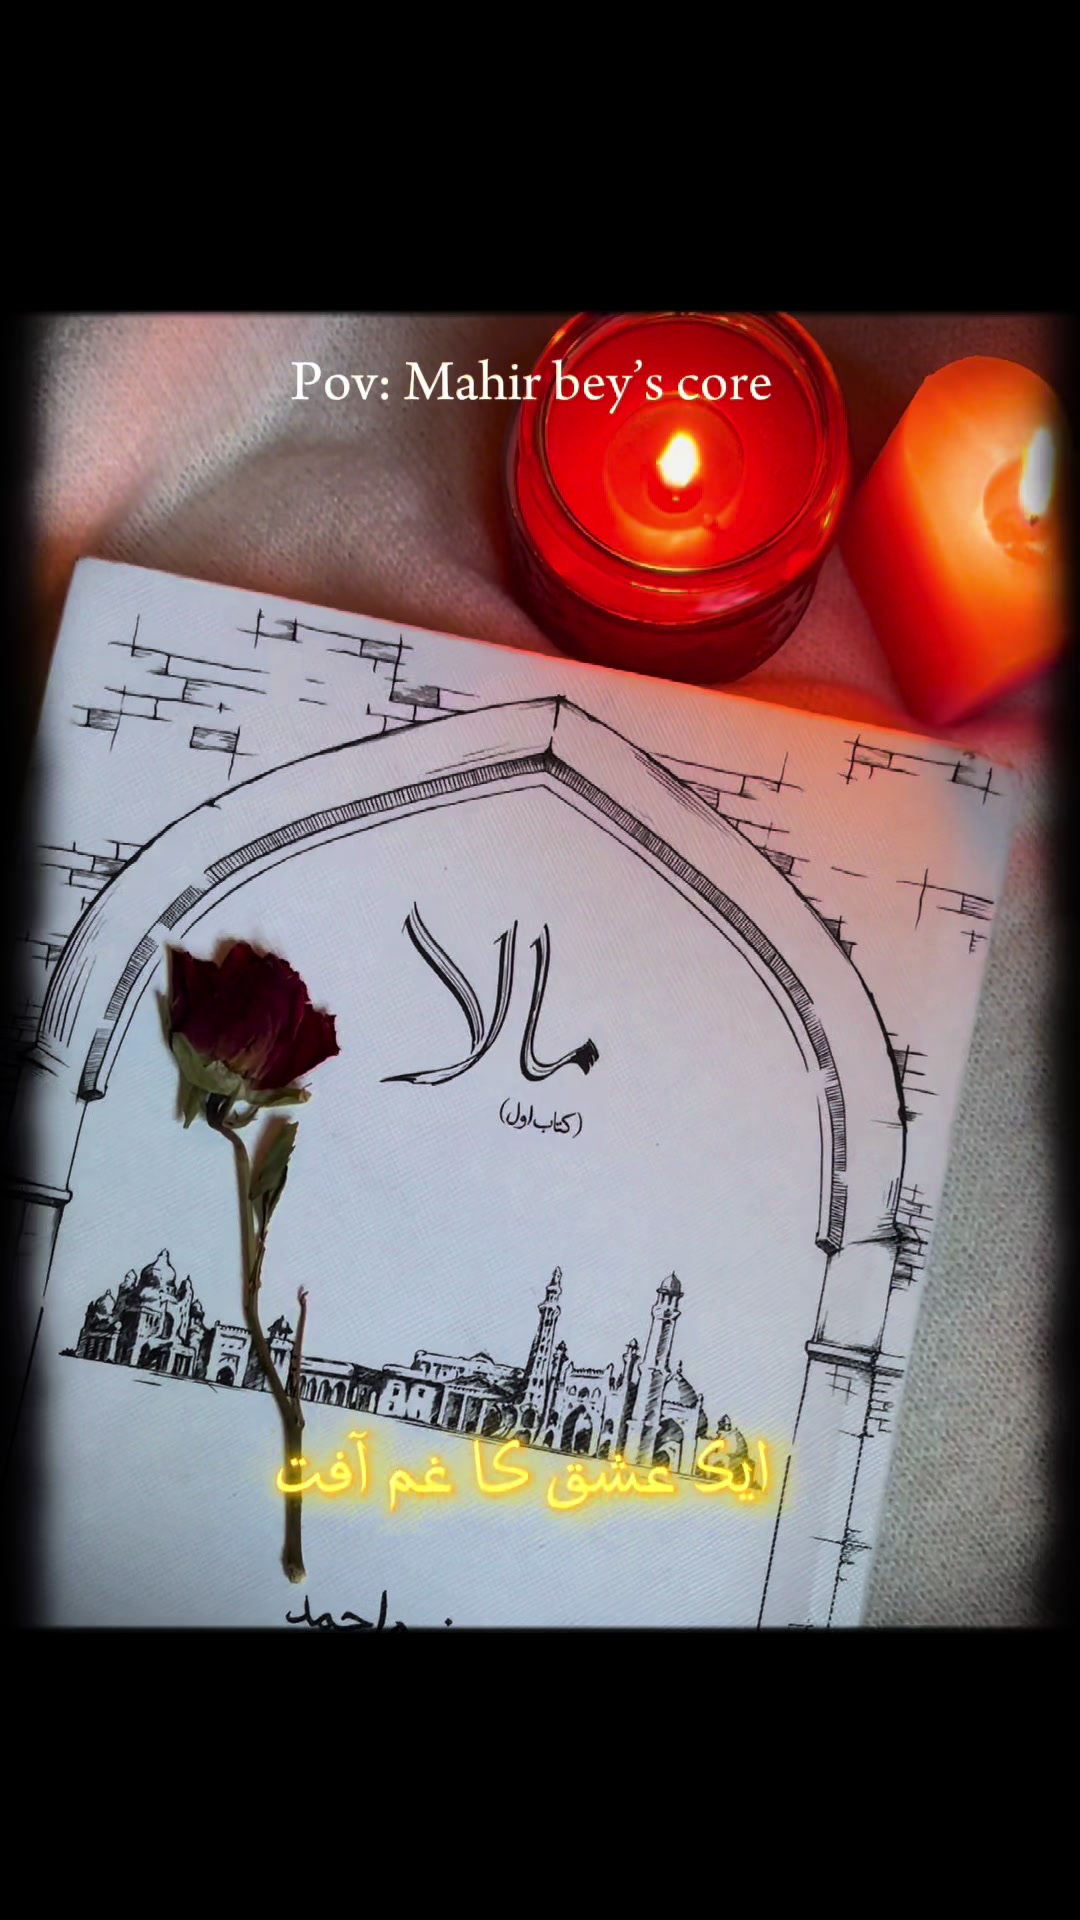 Pov: Mahir bey’s core
مالا
(کتاب اول)
ایک عشق کا غم آفت
احمد